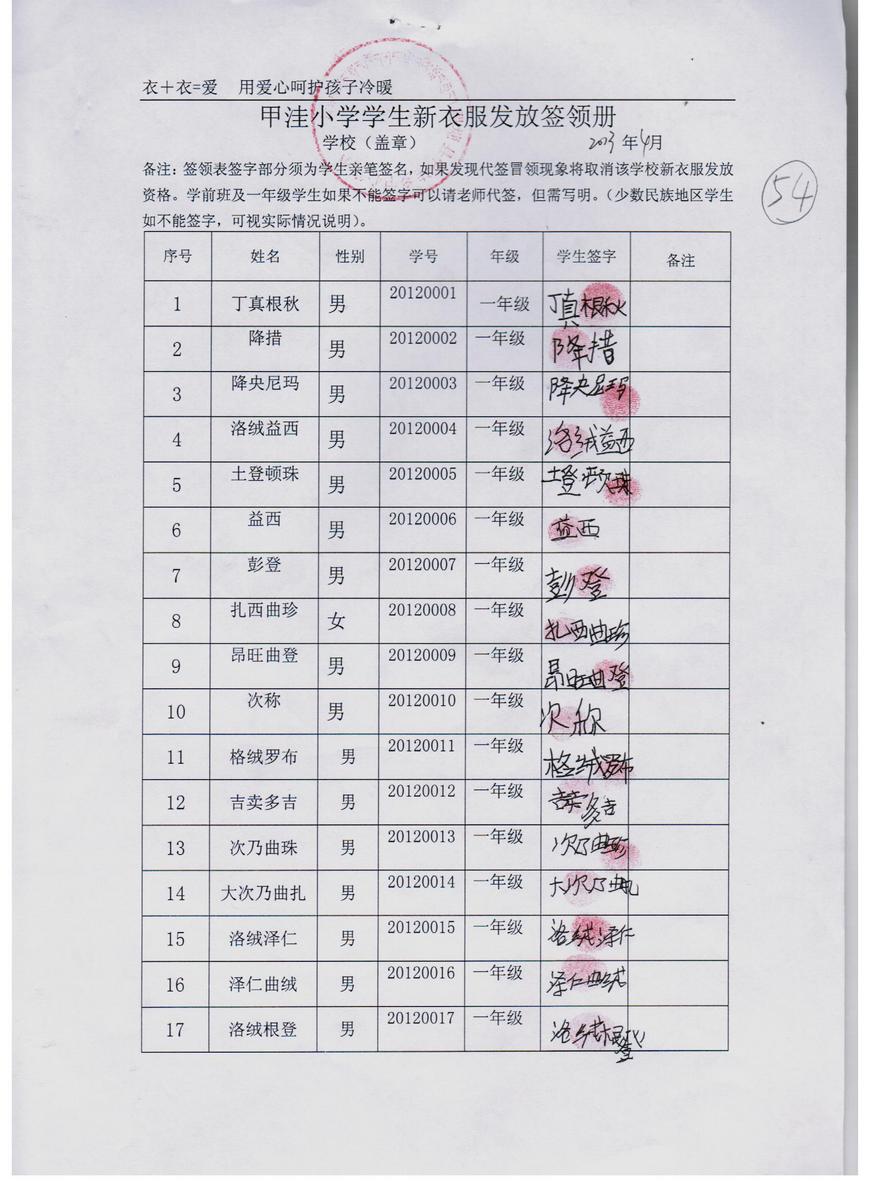 衣＋衣=爱 用爱心呵护孩子冷暖
甲洼小学学生新衣服发放签领册
学校（盖章） 2013 年4月
备注：签领表签字部分须为学生亲笔签名，如果发现代签冒领现象将取消该学校新衣服发放
资格。学前班及一年级学生如果不能签字可以请老师代签，但需写明。（少数民族地区学生
如不能签字，可视实际情况说明）。
54
序号 姓名 性别 学号 年级 学生签字 备注
1 丁真根秋 男 20120001 一年级 丁真根秋
2 降措 男 20120002 一年级 降措
3 降央尼玛 男 20120003 一年级 降央尼玛
4 洛绒益西 男 20120004 一年级 洛绒益西
5 土登顿珠 男 20120005 一年级 土登顿珠
6 益西 男 20120006 一年级 益西
7 彭登 男 20120007 一年级 彭登
8 扎西曲珍 女 20120008 一年级 扎西曲珍
9 昂旺曲登 男 20120009 一年级 昂旺曲登
10 次称 男 20120010 一年级 次称
11 格绒罗布 男 20120011 一年级 格绒罗布
12 吉卖多吉 男 20120012 一年级 吉卖多吉
13 次乃曲珠 男 20120013 一年级 次乃曲珍
14 大次乃曲扎 男 20120014 一年级 大次乃曲扎
15 洛绒泽仁 男 20120015 一年级 洛绒泽仁
16 泽仁曲绒 男 20120016 一年级 泽仁曲绒
17 洛绒根登 男 20120017 一年级 洛绒根登